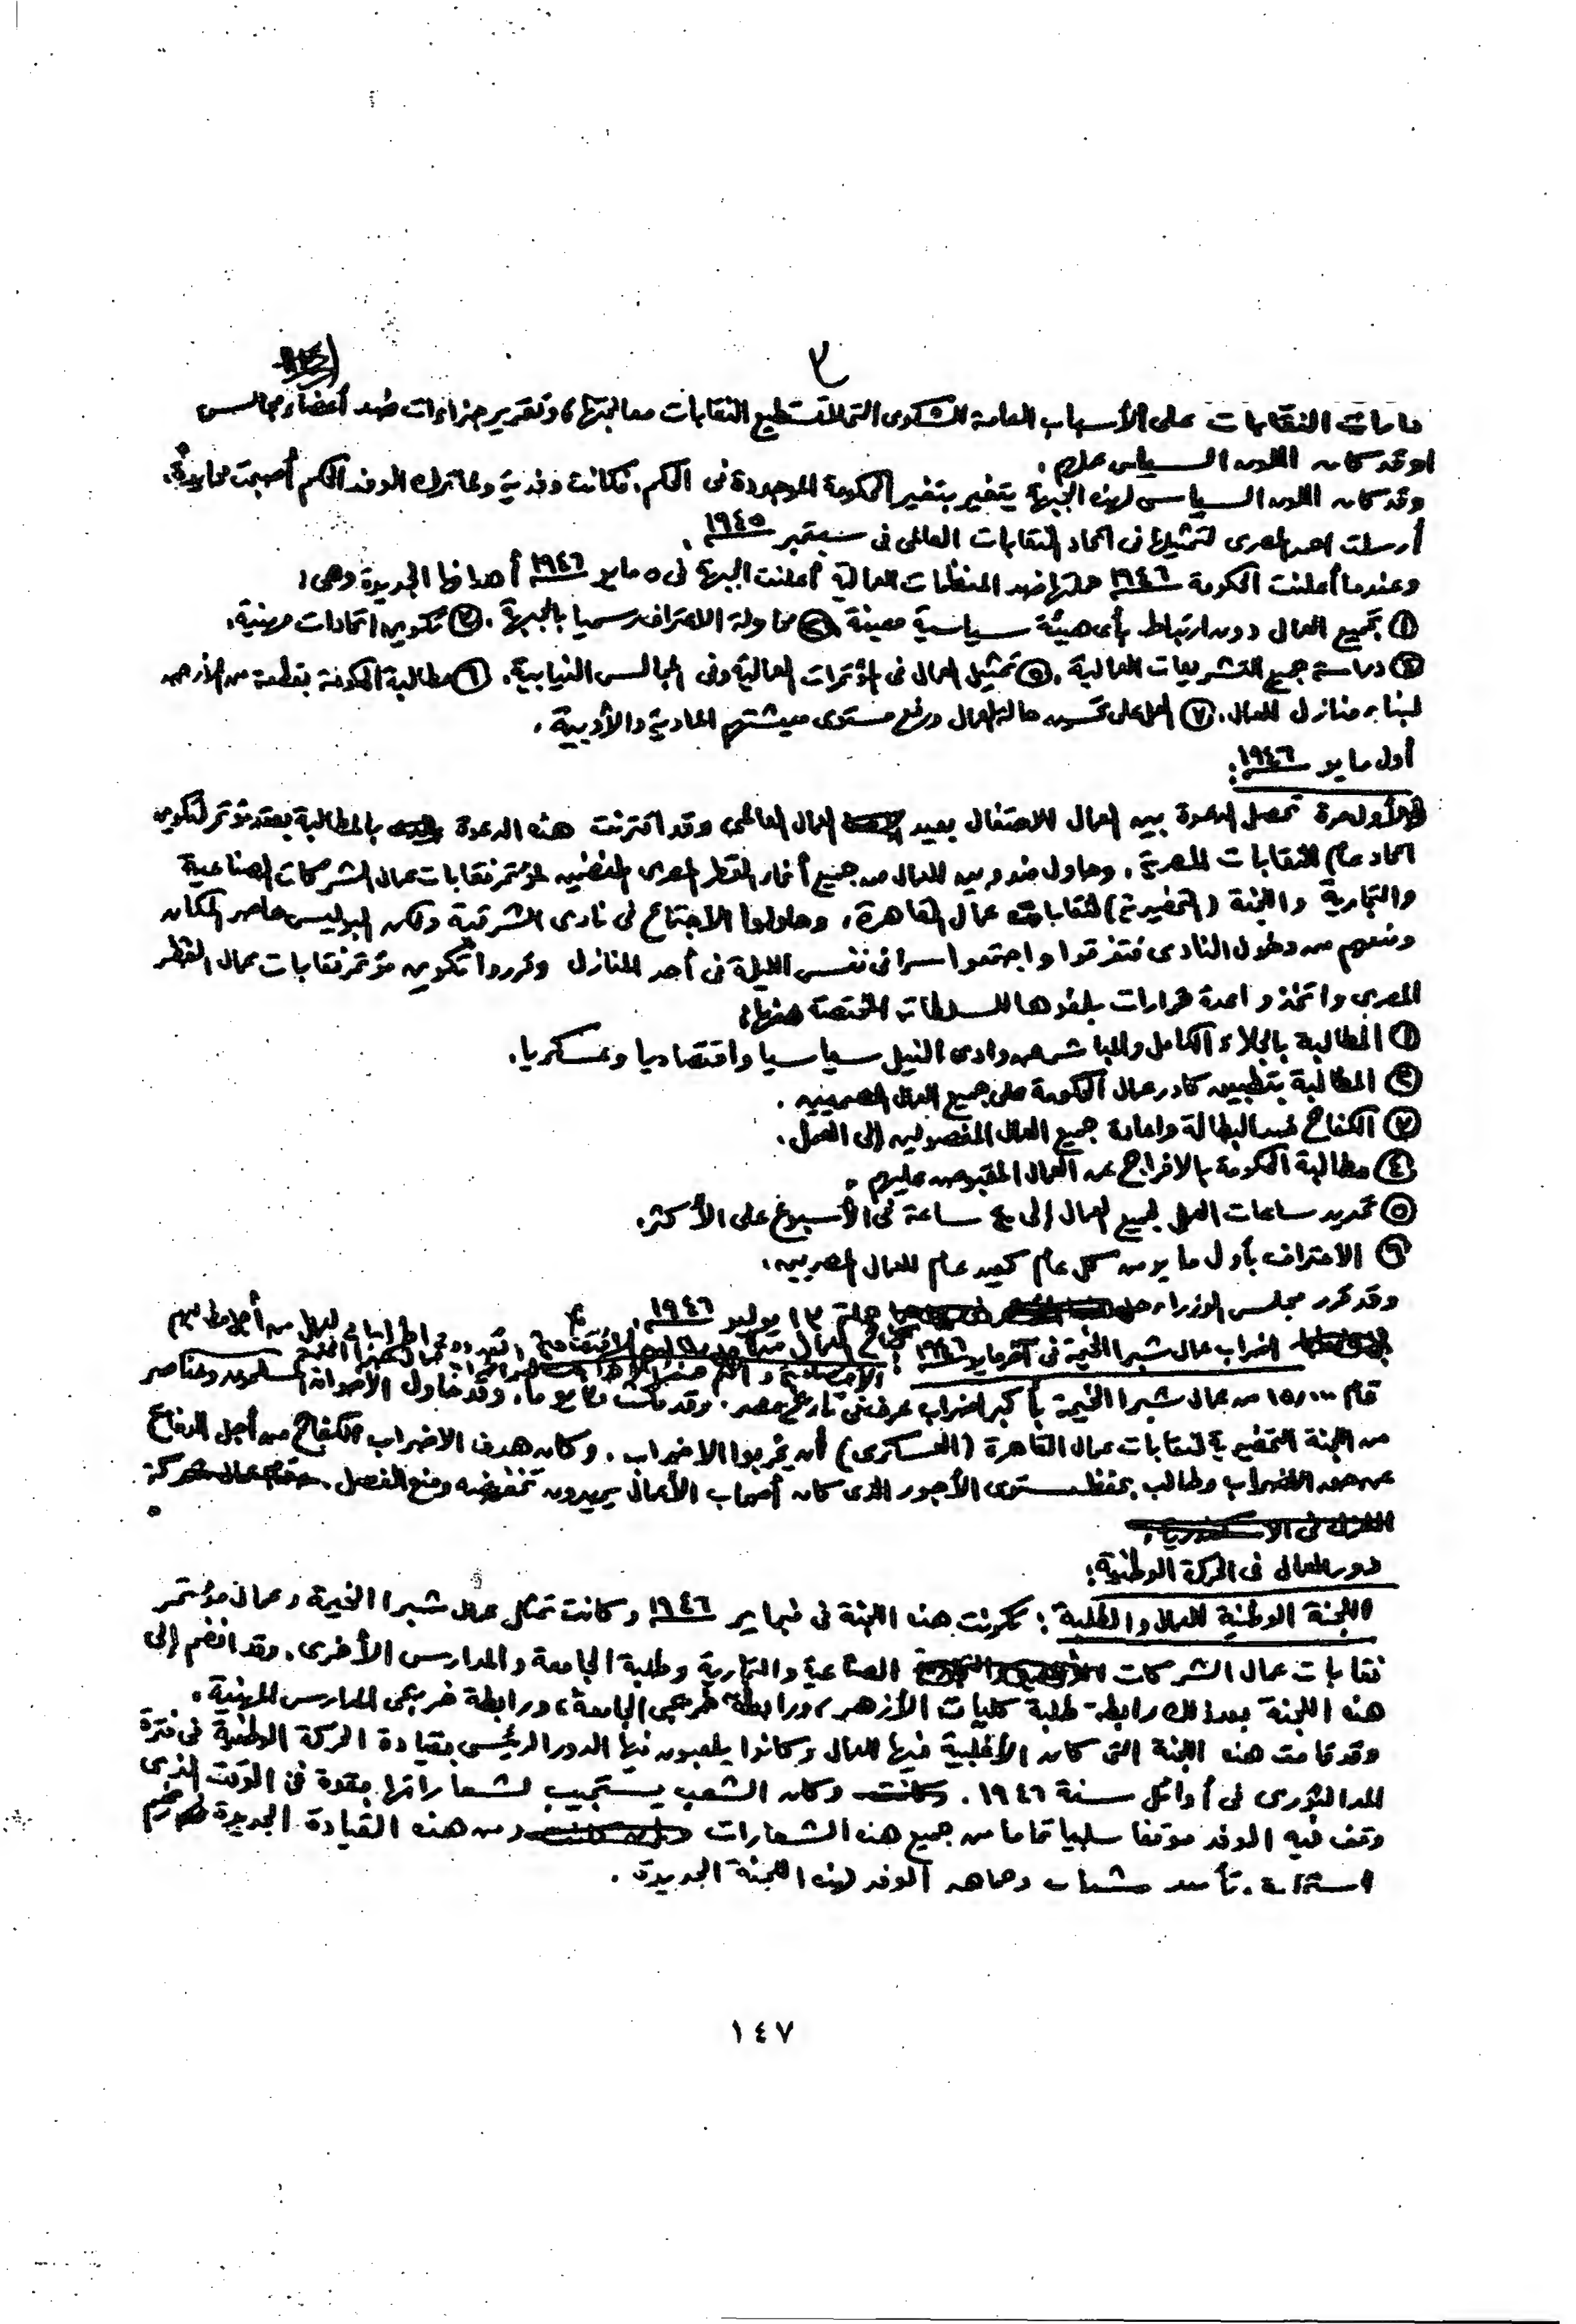 ٣
دارات النقابات على الأسباب العامة للشكوى التى لا تستطيع النقابات معالجتها، وتقرير جزاءات ضد أعضاء مجالس
وقد كان اللون السياسى
وقد كان اللون السياسى لهذه الجبهة يتغير بتغير الحكومة الموجودة فى الحكم. فكانت وفدية ولما ترك الوفد الحكم أصبحت محايدة.
أرسلت احمد المصرى لتمثيلها فى اتحاد النقابات العالمى فى سبتمبر ١٩٤٥.
وعندما أعلنت الحكومة ١٩٤٦ حملتها ضد المنظمات العمالية أعلنت الجبهة فى ٥ مايو ١٩٤٦ أهدافها الجديدة وهى:
١ تجميع العمال دون ارتباط بأى هيئة سياسية معينة ٢ محاولة الاعتراف رسميا بالجبهة. ٣ تكوين اتحادات مهنية.
٤ دراسة جميع التشريعات العمالية. ٥ تمثيل العمال فى المؤتمرات العمالية وفى المجالس النيابية. ٦ مطالبة الحكومة بقطعة من الأرض
لبناء منازل للعمال. ٧ العمل على تحسين حالة العمال ورفع مستوى معيشتهم المادية والأدبية.
أول مايو ١٩٤٦:
لأول مرة تحصل الدعوة بين العمال للاحتفال بعيد العمال العالمى وقد اقترنت هذه الدعوة بالمطالبة بعقد مؤتمر لتكوين
اتحاد عام للنقابات المصرية. وحاول مندوبين للعمال من جميع أنحاء القطر المصرى المنضمين لمؤتمر نقابات عمال الشركات الصناعية
والتجارية واللجنة (التحضيرية) لنقابات عمال القاهرة. وحاولوا الاجتماع فى نادى الشرقية ولكن البوليس حاصر المكان
ومنعهم من دخول النادى فتفرقوا واجتمعوا سرا فى نفس الليلة فى أحد المنازل وقرروا تكوين مؤتمر نقابات عمال القطر
المصرى واتخذوا عدة قرارات بلغوها للسلطات المختصة منها:
١ المطالبة بالجلاء الكامل والمباشر عن وادى النيل سياسيا واقتصاديا وعسكريا.
٢ المطالبة بتطبيق كادر عمال الحكومة على جميع العمال المصريين.
٣ الكفاح ضد البطالة واعادة جميع العمال المفصولين إلى العمل.
٤ مطالبة الحكومة بالافراج عن العمال المقبوض عليهم.
٥ تحديد ساعات العمل لجميع العمال إلى ٤٠ ساعة فى الأسبوع على الأكثر.
٦ الاعتراف بأول مايو من كل عام كعيد عام للعمال المصريين.
وقد قرر مجلس الوزراء جلسة ١٣ يوليو ١٩٤٦.
اضراب عمال شبرا الخيمة فى آخر مايو ١٩٤٦:
قام ١٥٫٠٠٠ من عمال شبرا الخيمة بأكبر اضراب عرف فى تاريخ مصر. وقد مكث يوما. وقد حاول الاخوان المسلمون وعناصر
من اللجنة التحضيرية لنقابات عمال القاهرة (العسكرى) أن يخربوا الاضراب. وكان هدف الاضراب الكفاح من أجل الدفاع
عن حق الاضراب وطالب بحفظ مستوى الأجور الذى كان أصحاب الأعمال يريدون تخفيضه ومنع الفصل.
دور العمال فى الحركة الوطنية:
اللجنة الوطنية للعمال والطلبة: تكونت هذه اللجنة فى فبراير ١٩٤٦ وكانت تمثل عمال شبرا الخيمة وعمال مؤتمر
نقابات عمال الشركات الصناعية والتجارية وطلبة الجامعة والمدارس الأخرى. وقد انضم إلى
هذه اللجنة بعد ذلك رابطة طلبة كليات الأزهر، ورابطة خريجى الجامعة، ورابطة خريجى المدارس المهنية.
وقد قامت هذه اللجنة التى كان الأغلبية فيها للعمال وكانوا يلعبون فيها الدور الرئيسى بقيادة الحركة الوطنية فى فترة
المد الثورى فى أوائل سنة ١٩٤٦. وكان الشعب يستجيب لشعاراتها بقوة فى الوقت الذى
وقف فيه الوفد موقفا سلبيا تماما من جميع هذه الشعارات ومن هذه القيادة الجديدة
شباب وجماهير الوفد لهذه اللجنة الجديدة.
١٤٧